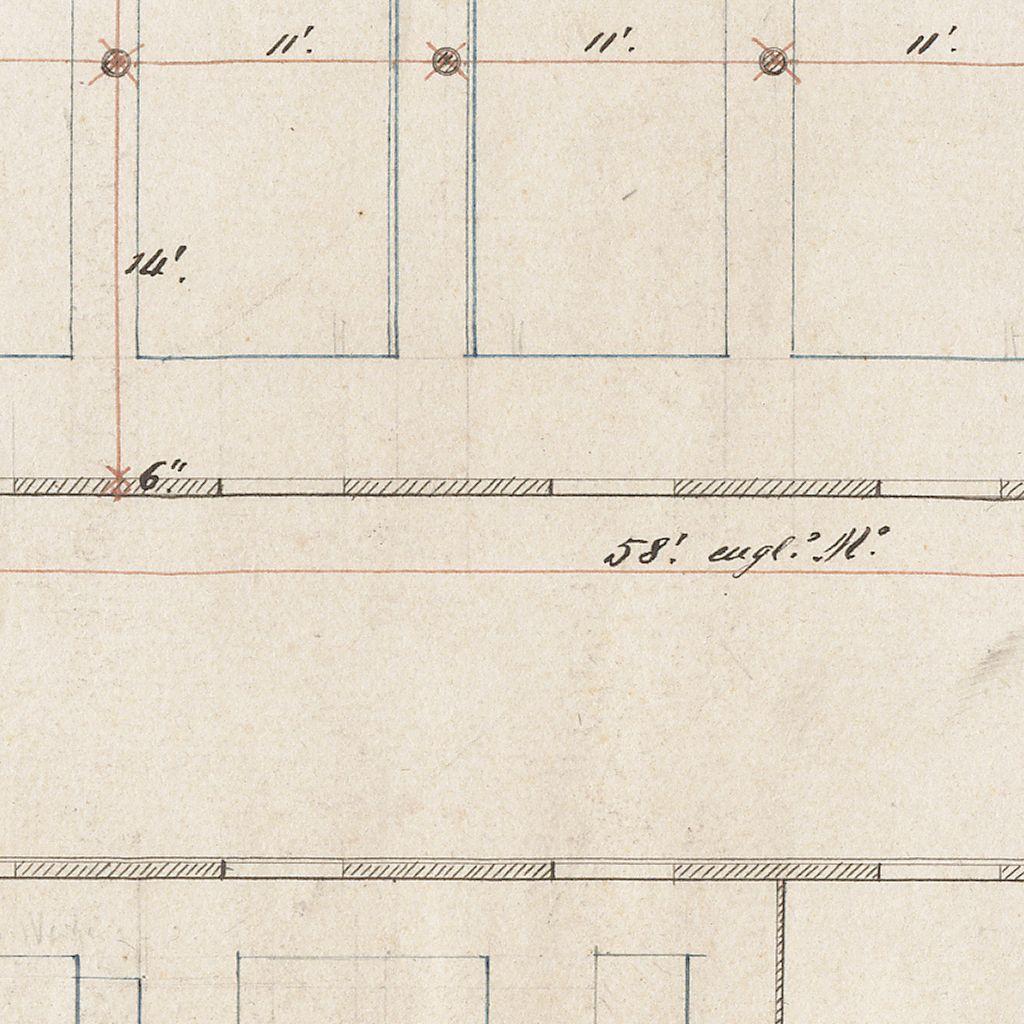 11'. 11'. 11'.
14'.
6"
58'. engl.s M.